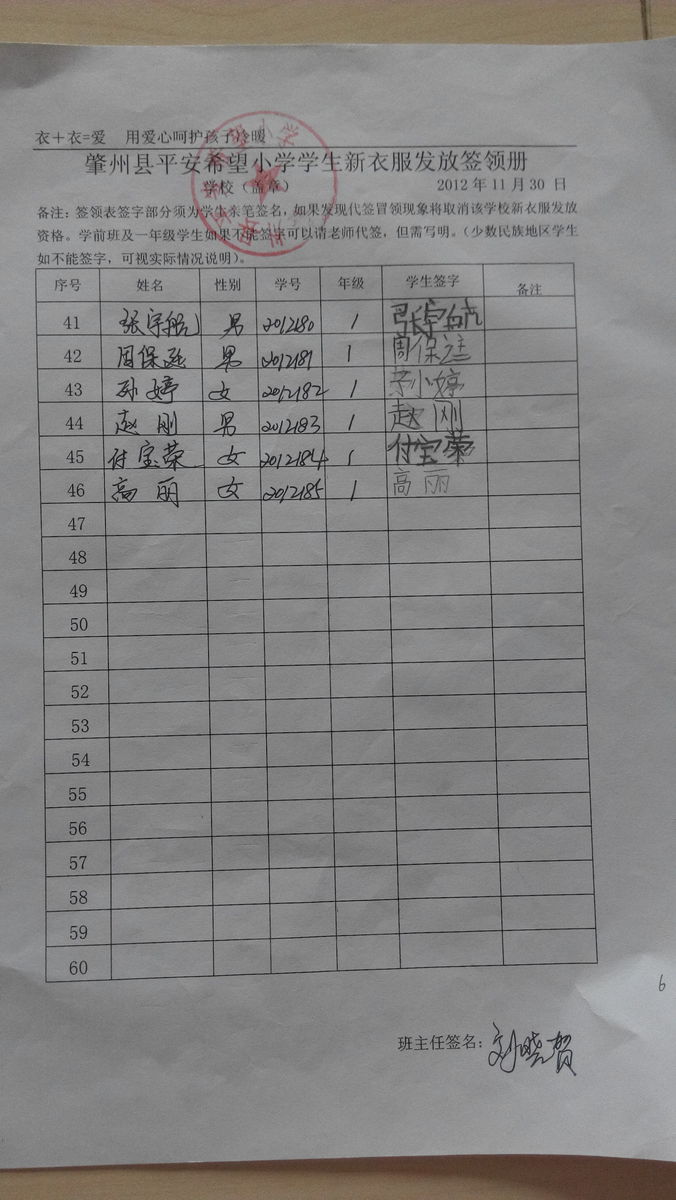 衣+衣=爱 用爱心呵护孩子冷暖
肇州县平安希望小学学生新衣服发放签领册
学校（盖章） 2012年11月30日
备注：签领表签字部分须为学生亲笔签名，如果发现代签冒领现象将取消该学校新衣服发放
资格。学前班及一年级学生如果不能签字可以请老师代签，但需写明。（少数民族地区学生
如不能签字，可视实际情况说明）。
序号 姓名 性别 学号 年级 学生签字 备注
41 张宇航 男 2012180 1 张宇航
42 周保廷 男 2012181 1 周保
43 孙婷 女 2012182 1 小婷
44 赵刚 男 2012183 1 赵刚
45 付宝荣 女 2012184 1 付宝荣
46 高丽 女 2012185 1 高丽
47
48
49
50
51
52
53
54
55
56
57
58
59
60
6
班主任签名：刘晓贺